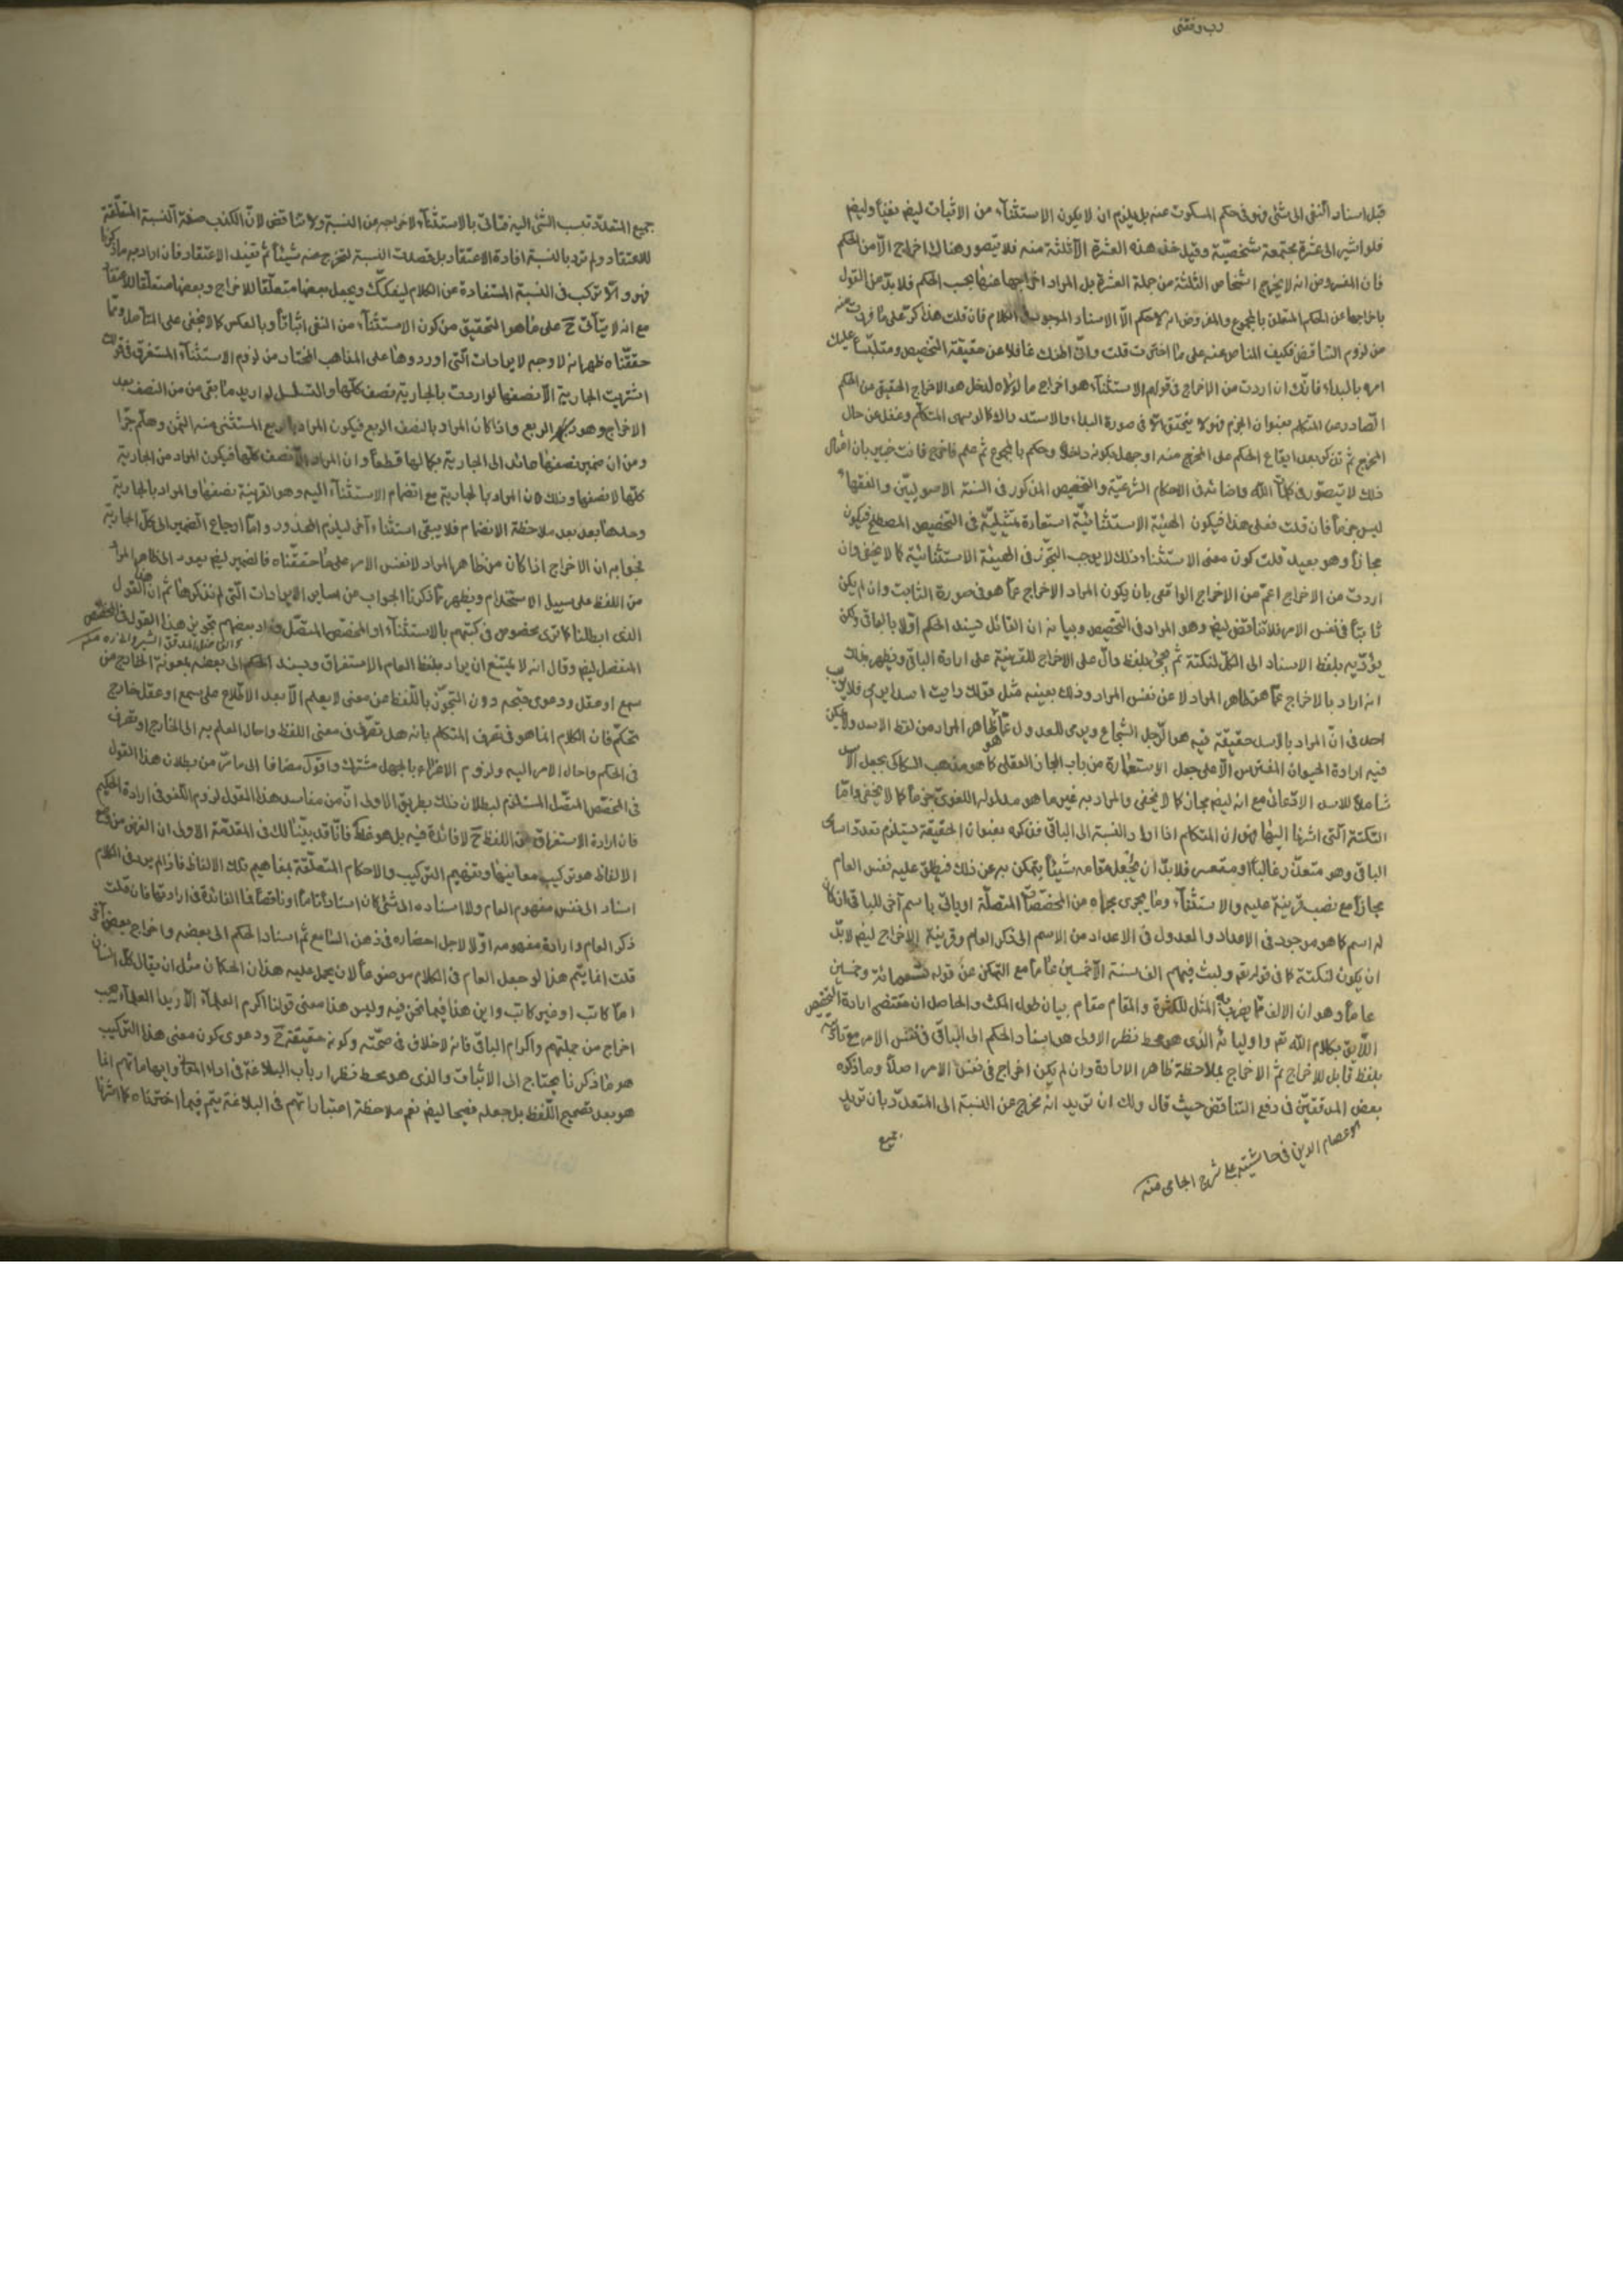 رب وفقني
قبل اسناد النفي الى شئ فهو في حكم المسكوت عنه بل يلزم ان لا يكون الاستثناء من الاثبات ليض نفيا وليض
فلو اشير الى عشرة مجتمعة شخصية وقيل خذ هذه العشرة الا ثلثة منه فلا يتصور هناك اخراج الا من الحكم
فان المفروض انه لا يخرج اشخاص الثلثة من جملة العشرة بل المراد اخراجها عنها بحسب الحكم فلا بد من القول
باخراجها عن الحكم المتعلق بالمجموع والمفروض انه لا حكم الا الاسناد الموجود في الكلام فان قلت هذا كر على ما فررت منه
من لزوم التناقض فكيف المناص عنه على ما اخترت قلت وانى اظنك غافلا عن حقيقة التخصيص ومتلبسا عليك
امره بالبداء فانك ان اردت من الاخراج في قولهم الاستثناء هو اخراج ما لولاه لدخل هو الاخراج الحقيقي من الحكم
الصادر من المتكلم بعنوان الجزم فهو لا يتحقق الا في صورة البداء والاستدراك كالو سهى المتكلم وغفل عن حال
المخرج ثم تذكر بعد ايقاع الحكم على المخرج منه او جهل بكونه داخلا وحكم بالمجموع ثم علم فاخرج فانت خبير بان امثال
ذلك لا يتصور في كلام الله واضائه في الاحكام الشرعية والتخصيص المذكور في السنة الاصوليين والفقهاء
ليس جزما فان قلت فعلى هذا فيكون الهيئة الاستثنائية استعارة تمثيلية في التخصيص المصطلح فيكون
مجازا وهو بعيد قلت كون معنى الاستثناء ذلك لا يوجب التجوز في الهيئة الاستثنائية كما لا يخفى وان
اردت من الاخراج اعم من الاخراج الواقعي بان يكون المراد الاخراج عما هو في صورة الثابت وان لم يكن
ثابتا في نفس الامر فلا تناقض ليض وهو المراد في التخصيص وبيانه ان القائل يسند الحكم اولا بالباقي ولكن
يؤديه بلفظ الاسناد الى الكل لنكتة ثم يجئ بلفظ دال على الاخراج للقرينة على ارادة الباقي ويظهر بذلك
انه اراد بالاخراج عما هو ظاهر المراد لا عن نفس المراد وذلك بعينه مثل قولك رايت اسدا يرمي فلا يرتاب
احد في ان المراد بالاسد حقيقة فيه هو الرجل الشجاع ويرمي للعدول عما هو ظاهر المراد من لفظ الاسد ولا يمكن
فيه ارادة الحيوان المفترس الا على جعل الاستعارة من باب المجاز العقلي كما هو مذهب السكاكي بجعل الاسد
شاملا للاسد الادعائي مع انه ليض مجاز كما لا يخفى والمراد به غير ما هو مدلوله اللغوي جزما كما لا يخفى واما
النكتة التي اشرنا اليها فهو ان المتكلم اذا اراد النسبة الى الباقي فذكره بعنوان الحقيقة يستلزم تعدد اسامي
الباقي وهو متعذر غالبا او متعسر فلا بد ان يجعل مقامه شيئا يتمكن به عن ذلك فيطلق عليه نفس العام
مجازا مع نصب قرينة عليه والاستثناء وما يجري مجراه من المخصصات المتصلة او ياتي باسم آخر للباقي ان كان
له اسم كما هو موجود في الاعداد والعدول في الاعداد من الاسم الى ذكر العام وقرينة الاخراج ليض لا بد
ان يكون لنكتة كما في قوله تع ولبث فيهم الف سنة الا خمسين عاما مع التمكن عن قوله تسعمائة وخمسين
عاما وهو ان الالف مما يضرب به المثل للكثرة والمقام مقام بيان طول المكث والحاصل ان مقتضى ارادة التخصيص
اللايق بكلام الله تع واوليائه الذي هو محط نظر الاولى هو اسناد الحكم الى الباقي في نفس الامر مع تاديته
بلفظ قابل للاخراج ثم الاخراج بملاحظة ظاهر الارادة وان لم يكن اخراج في نفس الامر اصلا وما ذكره
بعض المدققين في دفع التناقض حيث قال ولك ان تريد انه مخرج عن النسبة الى المتعدد بان تريد
جميع
عصام الدين في حاشيته على شرح الجامي منه
جميع المتعدد وتنسب الشئ اليه فتاتي بالاستثناء لاخراجه عن النسبة ولا تناقض لان الكذب صفة النسبة المتعلقة
للاعتقاد ولم ترد بالنسبة افادة الاعتقاد بل قصدت النسبة لتخرج عنه شيئا ثم تفيد الاعتقاد فان اراد به ما ذكرنا
فهو والا تركب في النسبة المستفادة من الكلام ليفكك ويجعل بعضها متعلقا للاخراج وبعضها متعلقا للاعتقاد
مع انه لا يتاتى ح على ما هو التحقيق من كون الاستثناء من النفي اثباتا وبالعكس كما لا يخفى على المتأمل ومما
حققناه ظهر انه لا وجه لايرادات التي اوردوها على المذهب المختار من لزوم الاستثناء المستغرق في قولك
اشتريت الجارية الا نصفها لو اردت بالجارية نصف كلها والتسلسل لو اريد ما بقي من النصف بعد
الاخراج وهو الربع واذا كان المراد بالنصف الربع فيكون المراد بالربع المستثنى منه الثمن وهلم جرا
ومن ان ضمير نصفها عائد الى الجارية بكمالها قطعا وان المراد الا نصف كلها فيكون المراد من الجارية
كلها لا نصفها وذلك لان المراد بالجارية مع انضمام الاستثناء اليه وهو القرينة نصفها والمراد بالجارية
وحدها بعد ملاحظة الانضمام فلا يبقى استثناء آخر ليلزم المحذور واما ارجاع الضمير الى كل الجارية
فجوابه ان الاخراج اذا كان من ظاهر المراد لا نفس الامر على ما حققناه فالضمير ليض يعود الى ظاهر المراد
من اللفظ على سبيل الاستخدام ويظهر مما ذكرنا الجواب عن ساير الايرادات التي لم نذكرها ثم ان هذا القول
الذي ابطلناه كما ترى مخصوص في كتبهم بالاستثناء او المخصص المتصل وزاد بعضهم تجويز هذا القول في المخصص
المنفصل ليض وقال انه لا يمتنع ان يراد بلفظ العام الاستغراق ويسند الحكم الى بعضه بمعونة الخارج من
سمع او عقل ودعوى قبحه دون التجوز باللفظ عن معنى لا يعلم الا بعد الاطلاع على سمع او عقل خارج
تحكم فان الكلام انما هو في تصرف المتكلم بانه هل تصرف في معنى اللفظ واحال العلم به الى الخارج او تصرف
في الحكم واحال الامر اليه ولزوم الاغراء بالجهل مشترك واقول مضافا الى ما مر من بطلان هذا القول
في المخصص المتصل المستلزم لبطلان ذلك بطريق الاولى ان من مفاسد هذا القول لزوم اللغو في ارادة الحكيم
فان ارادة الاستغراق من اللفظ ح لا فائدة فيه بل هو غلط فانا قد بينا لك في المقدمة الاولى ان الغرض من وضع
الالفاظ هو تركيب معانيها وتفهيم التركيب والاحكام المتعلقة بمفاهيم تلك الالفاظ فاذا لم يرد في الكلام
اسناد الى نفس مفهوم العام ولا اسناده الى شئ كان اسنادا تاما او ناقصا فما الفائدة في ارادتها فان قلت
ذكر العام وارادة مفهومه اولا لاجل احضاره في ذهن السامع ثم اسناد الحكم الى بعضه واخراج بعض آخر
قلت انما يتم هذا لو جعل العام في الكلام موضوعا لان يحمل عليه هذان الحكمان مثل ان يقال كل انسان
اما كاتب او غير كاتب واين هذا فيما نحن فيه وليس هذا معنى قولنا اكرم العلماء الا زيدا العلماء يجب
اخراج من جملتهم واكرام الباقي فانه لا خلاف في صحته وكونه حقيقة ح ودعوى كون معنى هذا التركيب
هو ما ذكرنا يحتاج الى الاثبات والذي هو محط نظر ارباب البلاغة في اداء المعاني وايهاماتهم انما
هو بعد تصحيح اللفظ بل جعله فصيحا ليض نعم ملاحظة اعتباراتهم في البلاغة يتم فيما اخترناه كما اشرنا